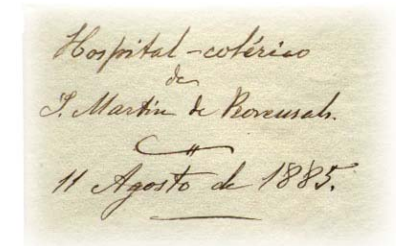 Hospital-colérico
de
S. Martin de Provensals.
11 Agosto de 1885.